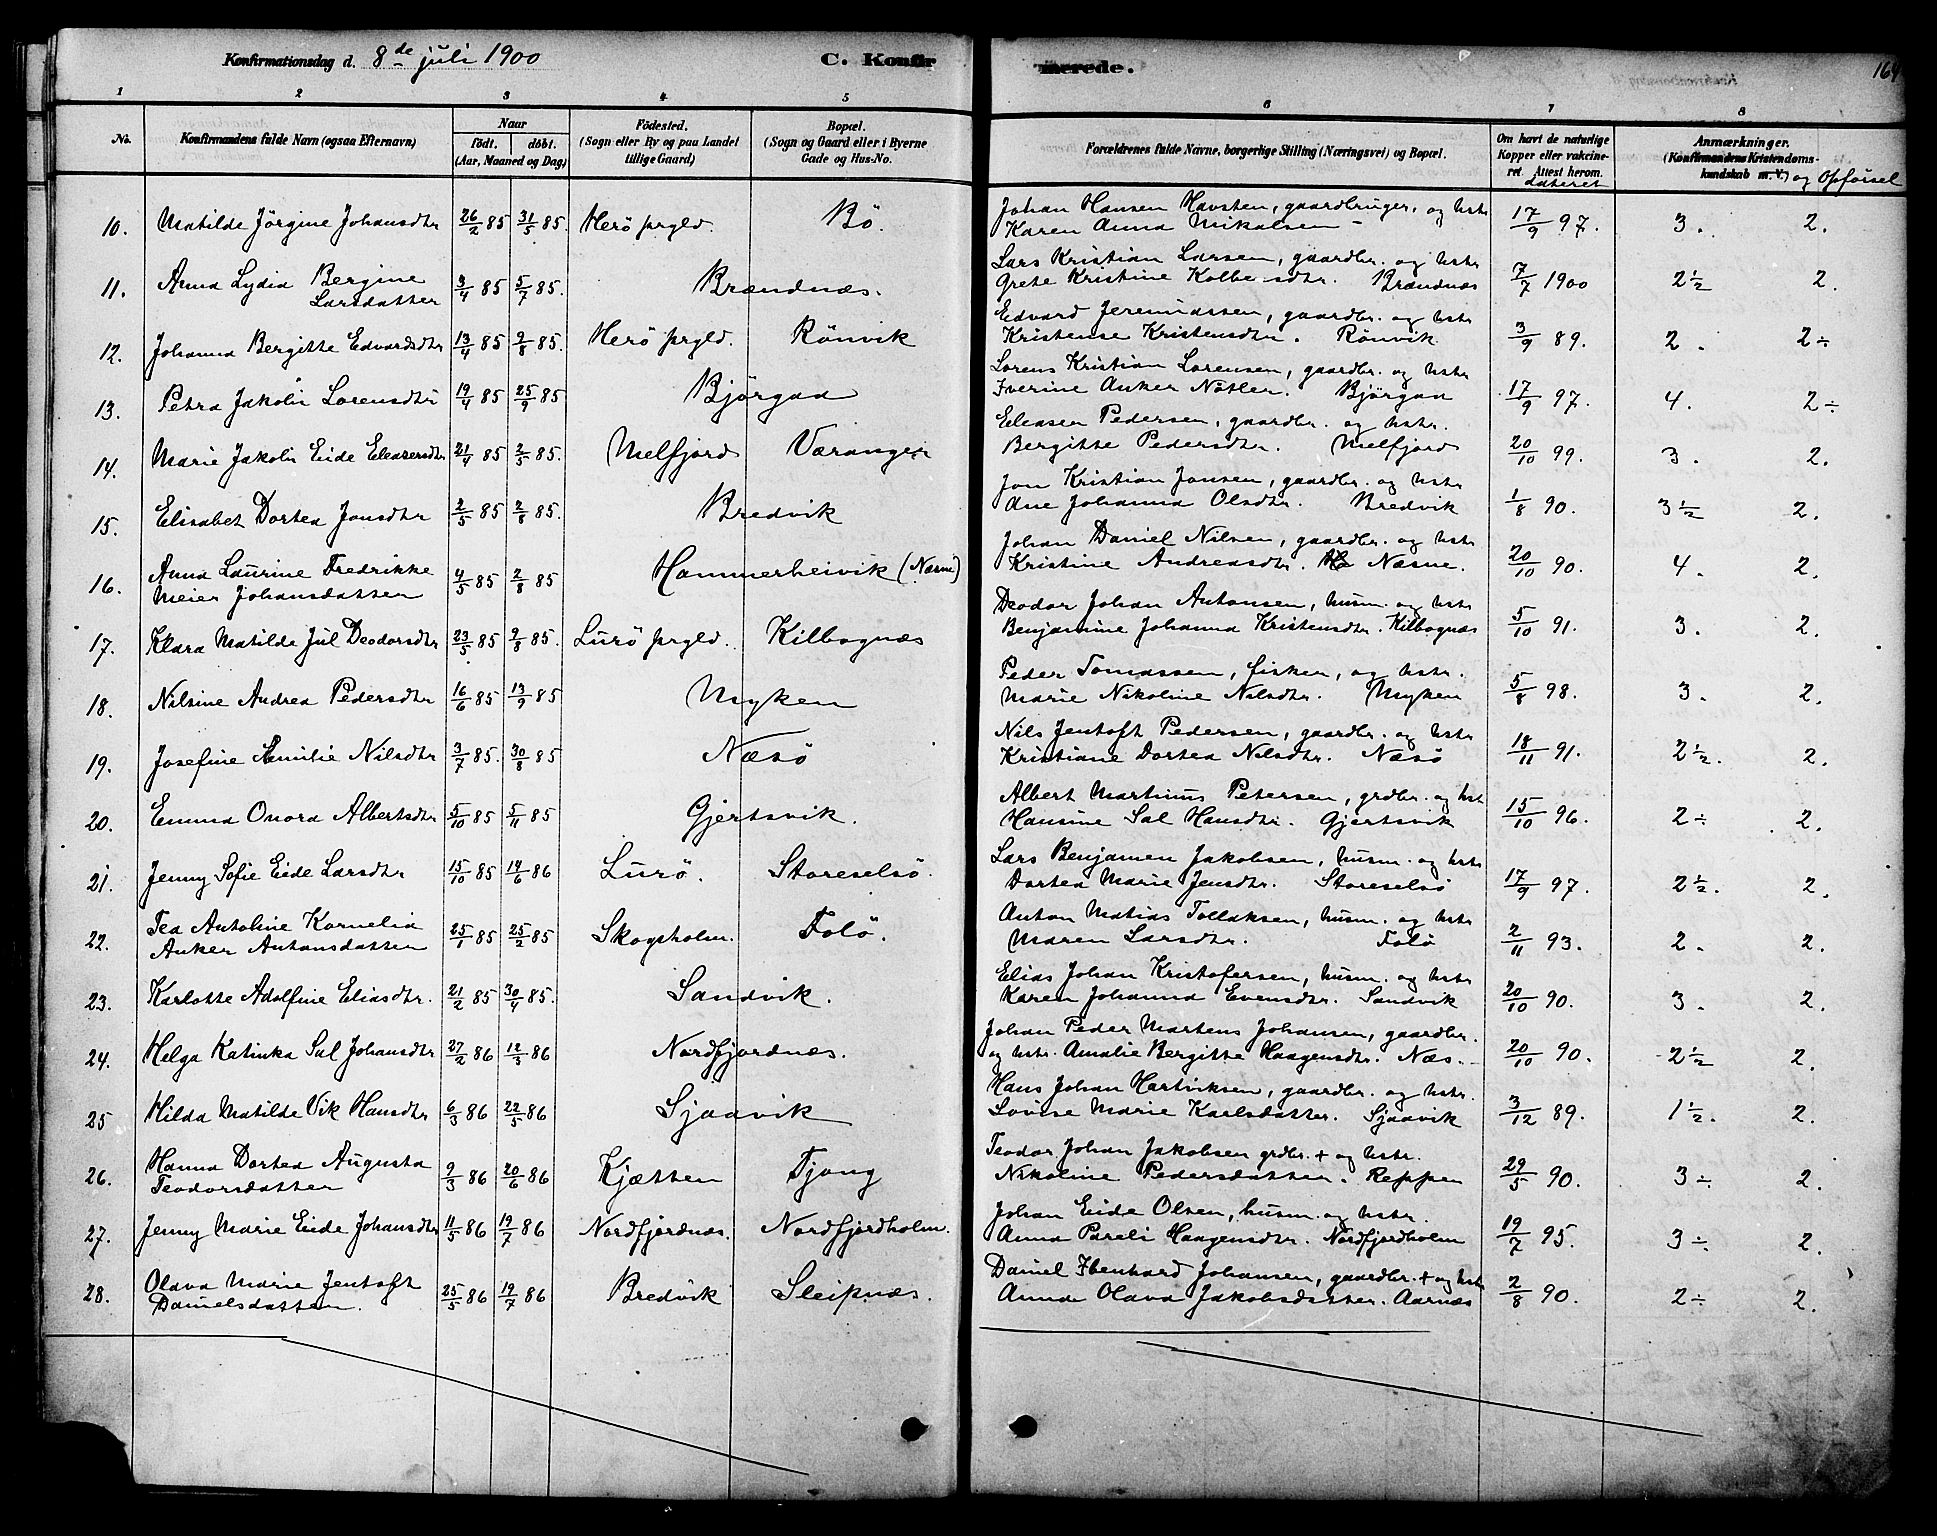 Konfirmationsdag d. 8de juli 1900
C. Konfirmerede.
164
1 2 3 4 5 6 7 8
No.
Konfirmandens fulde Navn (ogsaa Efternavn)
Naar
födt. döbt.
(Aar, Maaned og Dag)
Födested.
(Sogn eller By og paa Landet
tillige Gaard)
Bopæl.
(Sogn og Gaard eller i Byerne
Gade og Hus-No.
Forældrenes fulde Navne, borgerlige Stilling (Næringsvei) og Bopæl.
Om havt de naturlige
Kopper eller vakcineret. Attest herom.
dateret
Anmærkninger.
(Konfirmandens Kristendomskundskab m.V.) og Opförsel
10. Matilde Jörgine Johansdtr 26/2 85 31/5 85. Herö prgld. Bö. Johan Hansen Havsten, gaardbruger, og hstr 17/9 97. 3. 2.
Karen Anna Mikalsen –
11. Anna Lydia Bergine 3/4 85 5/7 85. Brændnæs. Lars Kristian Larsen, gaardbr. og hstr 7/7 1900 2½ 2.
Larsdatter Grete Kristine Kolbe-sdtr. Brændnæs
12. Johanna Bergitte Edvardsdtr 13/4 85 2/8 85. Herö prgld. Rönvik Edvard Jeremiassen, gaardbr. og hstr 3/9 89. 2. 2÷
Kristense Kristensdtr. Rönvik
13. Petra Jakobi Lorensdtr 19/4 85 25/9 85 Björgaa Lorens Kristian Lorensen, gaardbr. og hstr 17/9 97. 4. 2÷
Iverine Anker Nötler. Björgaa
14. Marie Jakobi Eide Eleasersdtr 21/4 85 2/5 85. Melfjord Væranger Eleasen Pedersen, gaardbr. og hstr. 20/10 99. 3. 2.
Bergitte Pedersdtr. Melfjord
15. Elisabet Dortea Jonsdtr 2/5 85 2/8 85. Bredvik Jon Kristian Jonsen, gaardbr. og hstr 1/8 90. 3½ 2.
Ane Johanna Olsdtr. Bredvik
16. Anna Laurine Fredrikke 4/5 85 2/8 85 Hammerheivik (Næsne) Johan Daniel Nilsen, gaardbr. og hstr 20/10 90. 4. 2.
Meier Johansdatter Kristine Andreasdtr. Næsne.
17. Klara Matilde Jul Deodorsdtr 23/5 85 2/8 85. Lurö prgld. Kilbognæs Deodor Johan Antonsen, husm. og hstr 5/10 91. 3. 2.
Benjamine Johanna Kristensdtr. Kilbognæs
18. Nilsine Andrea Pedersdtr 16/6 85 13/9 85 Myken Peder Tomassen, fisker, og hstr. 5/8 98. 3. 2.
Marie Nikoline Nilsdtr. Myken
19. Josefine Amilie Nilsdtr 3/7 85. 30/8 85 Næsö Nils Jentoft Pedersen, gaardbr. og hstr 18/11 91. 2½. 2.
Kristiane Dortea Nilsdtr. Næsö
20. Emma Onora Albertsdtr 5/10 85 5/11 85 Gjertsvik. Albert Martinus Petersen, grdbr. og hst 15/10 96. 2÷ 2.
Hansine Sal Hansdtr. Gjertsvik
21. Jenny Sofie Eide Larsdtr 15/10 85 14/6 86 Lurö. Storeselsö. Lars Benjamen Jakobsen, husm. og hstr 17/9 97. 2½. 2.
Dortea Marie Jensdtr. Storeselsö
22. Tea Antoline Kornelia 25/1 85 25/2 85 Skogsholm. Tolö. Anton Matias Tollaksen, husm. og hstr 2/11 93. 2. 2.
Anker Antonsdatter Maren Larsdtr. Tolö
23. Karlotte Adolfine Eliasdtr. 21/2 85 30/4 85. Sandvik. Elias Johan Kristofersen, husm. og hstr 20/10 90. 3. 2.
Karen Johanna Evensdtr. Sandvik
24. Helga Katinka Sal Johansdtr 27/2 86 12/3 86 Nordfjordnæs. Johan Peder Martens Johansen, gaardbr. 20/10 90. 2½ 2.
og hstr. Amalie Bergitte Haagensdtr. Næs.
25 Hilda Matilde Vik Hansdtr 6/3 86 22/5 86 Sjaavik Hans Johan Hartviksen, gaardbr. og hstr. 3/12 89. 1½. 2.
Lovise Marie Karlsdatter. Sjaavik
26. Hanna Dortea Augusta 9/3 86 20/6 86 Kjætten Tjong Teodor Johan Jakobsen grdbr. + og hstr. 29/5 90. 3÷ 2.
Teodorsdatter Nikoline Pedersdatter. Reppen
27. Jenny Marie Eide Johansdtr 11/5 86 19/7 86 Nordfjordnæs. Nordfjordholm. Johan Eide Olsen, husm. og hstr. 19/7 95. 3÷. 2.
Anna Pareli Haagensdtr. Nordfjordholm
28. Olava Marie Jentoft 25/5 86 19/7 86 Bredvik Sleipnæs. Daniel Ibenhard Johansen, gaardbr. + og hst 2/8 90. 2÷ 2.
Danielsdatter. Anna Olava Jakobsdatter. Aarnæs